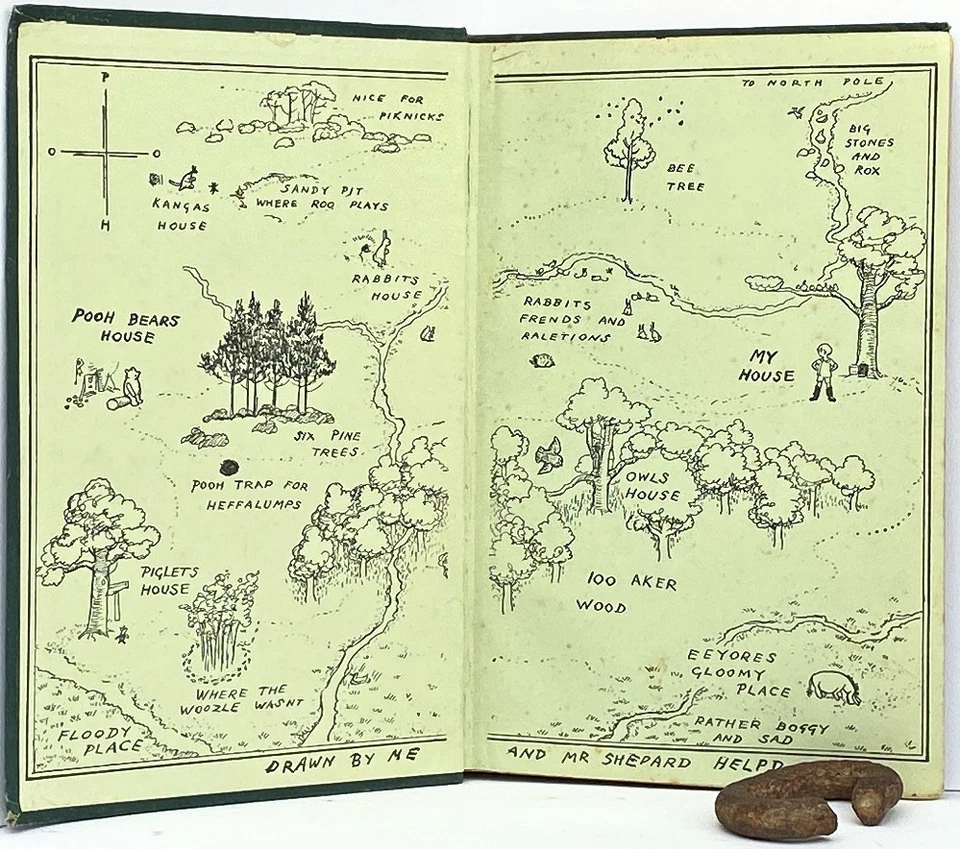 P
O O
H
NICE FOR
PIKNICKS
KANGAS
HOUSE
SANDY PIT
WHERE ROO PLAYS
RABBITS
HOUSE
POOH BEARS
HOUSE
SIX PINE
TREES
POOH TRAP FOR
HEFFALUMPS
PIGLETS
HOUSE
WHERE THE
WOOZLE WASNT
FLOODY
PLACE
DRAWN BY ME
TO NORTH POLE
BIG
STONES
AND
ROX
BEE
TREE
RABBITS
FRENDS AND
RALETIONS
MY
HOUSE
OWLS
HOUSE
100 AKER
WOOD
EEYORES
GLOOMY
PLACE
RATHER BOGGY
AND SAD
AND MR SHEPARD HELPD